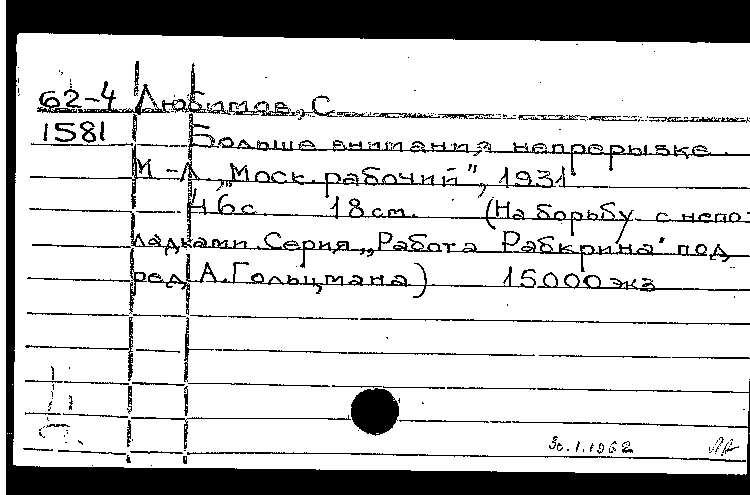 62-4 Любимов, С.
1581 Больше внимания непрерывке.
М.-Л. „Моск. рабочий", 1931
46 с. 18 см. (На борьбу с непо-
ладками. Серия „Работа Рабкрина" под
ред. А. Гольцмана) 15000 экз
30.1.1962